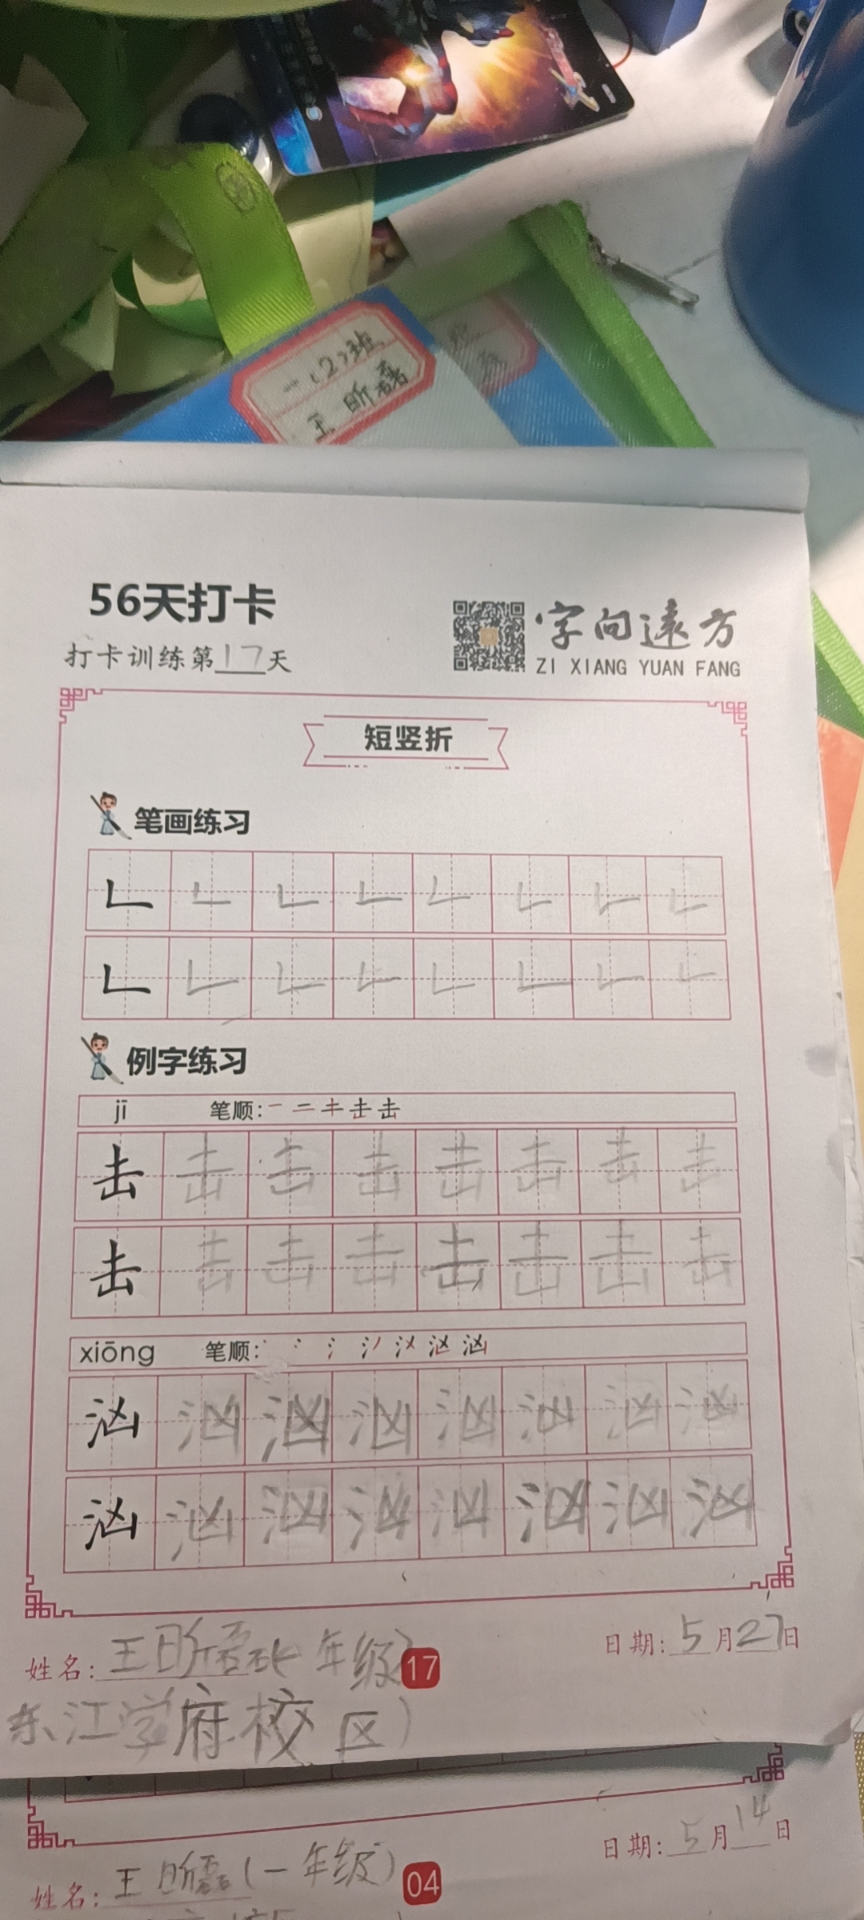 一(2)班
王昕磊
56天打卡
打卡训练第17天
字向遠方
ZI XIANG YUAN FANG
短竖折
笔画练习
𠃊 𠃊 𠃊 𠃊 𠃊 𠃊 𠃊 𠃊
𠃊 𠃊 𠃊 𠃊 𠃊 𠃊 𠃊 𠃊
例字练习
jī 笔顺: 一 二 キ 击 击
击 击 击 击 击 击 击 击
击 击 击 击 击 击 击 击
xiōng 笔顺: 汹
汹 汹 汹 汹 汹 汹 汹 汹
汹 汹 汹 汹 汹 汹 汹 汹
姓名: 王昕磊(一年级 17 日期: 5月27日
东江学府校区)
姓名: 王昕磊(一年级) 04 日期: 5月14日